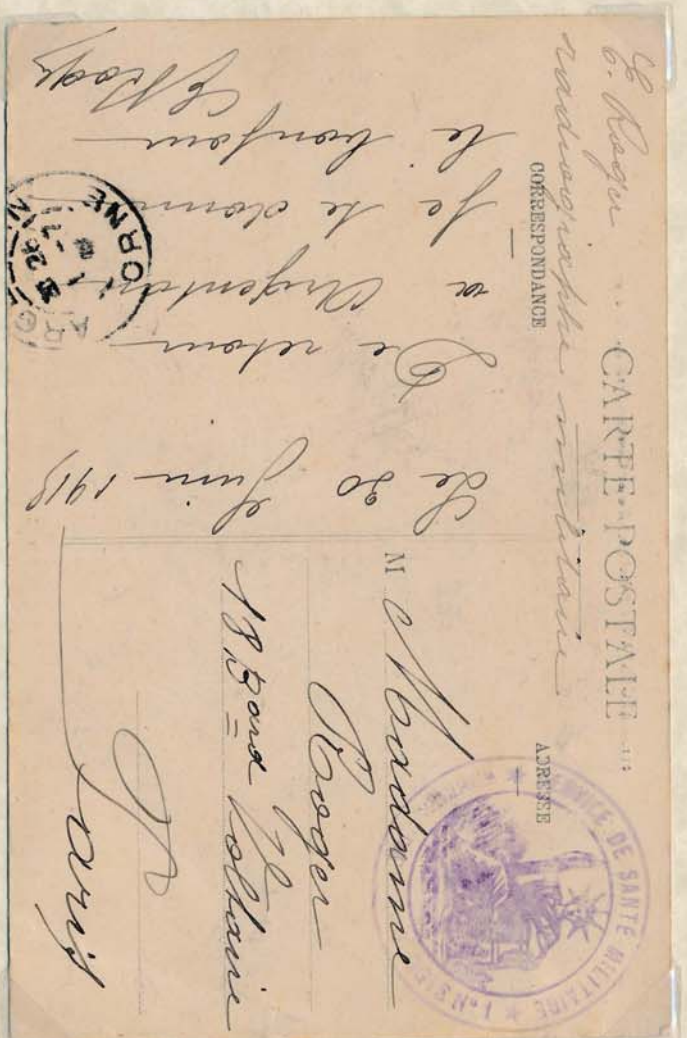 E. Roger
CARTE POSTALE
radiographe militaire
CORRESPONDANCE
ADRESSE
Le 30 Juin
De retour
a Argentan
Je te donne
le bonjour
ERoger
M Madame
Roger
18 Bard Voltaire
Paris
SERVICE DE SANTÉ MILITAIRE
ORNE